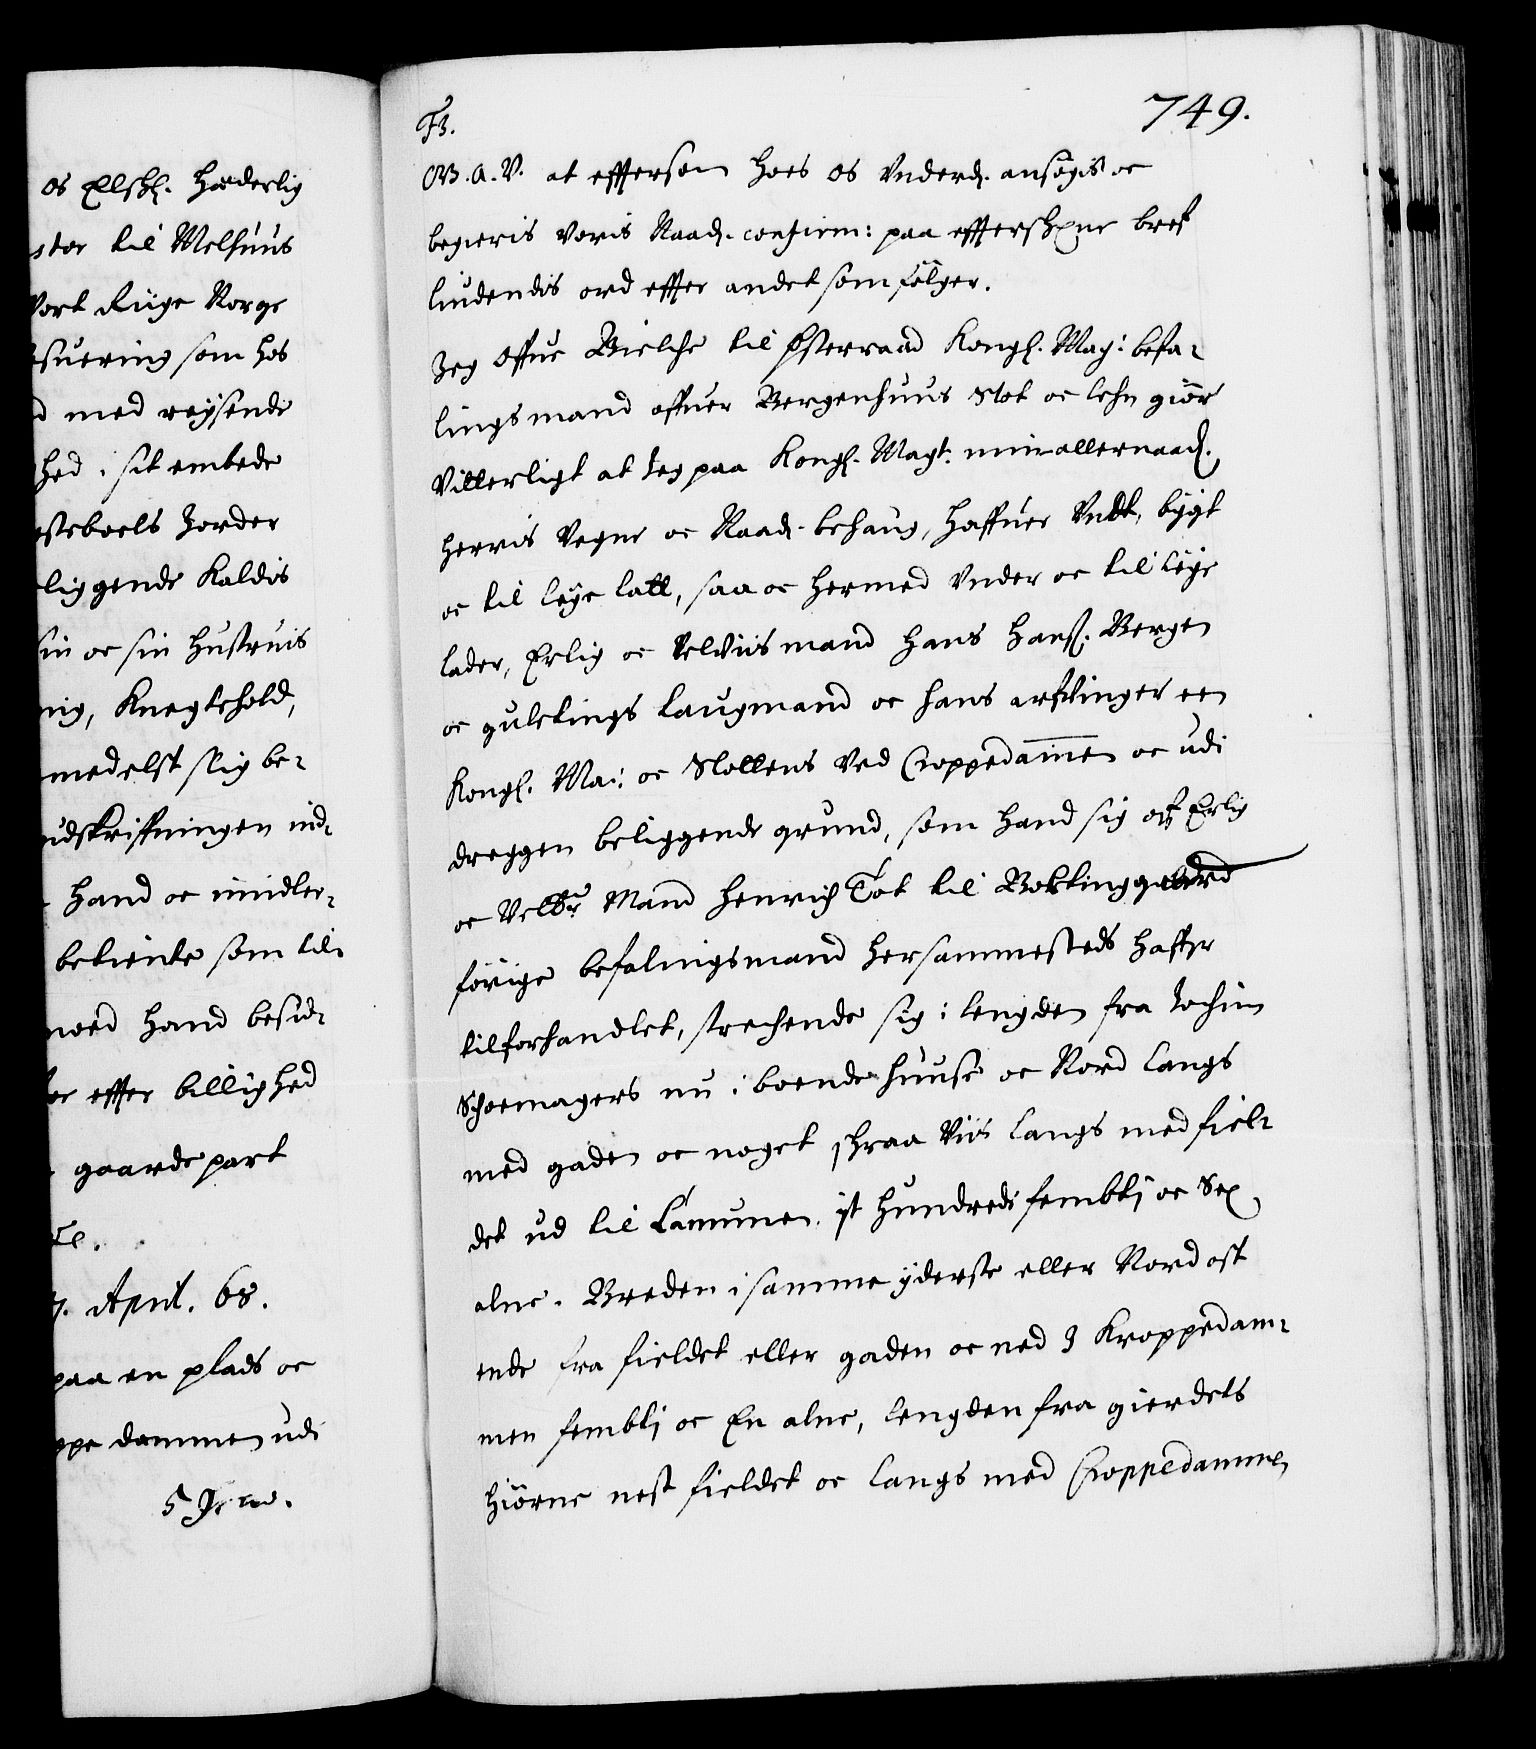 os Elskl. Hæderlig
stor til Melhuus
Vort Riige Norge
suering som hos
d med reysende
hed i sit embede
steboels Jorder
liggende Kaldis
sin oc sin Hustruis
nig, Knegtehold,
medelst slig be-
udskriffningen ind-
hand oc imidler-
betiente som til
med hand besid-
er effter billighed
gaarde part
7. April. 68.
paa en plads oc
ppe dammen udi
749.
F3.
G. A. V. at efftersom hoes os Vnderd. ansøgis oc
begieris Voris Naad. confirm: paa effterskrne bref
liudendis ord effter andet som følger.
Jeg Offue Bielche til Østeraad Kongl. May: befa-
lingsmand offuer Bergenhuus Slot oc lehn giør
Vitterligt at Jeg paa Kongl. Mayt. min allernaad.
Herris Vegne oc Naad. behaug, haffuer Vndt, bygt
oc til leye latt, saa oc hermed Vnder oc til Leye
lader, Erlig oc Velviis mand Hans Hanss. Bergen
oc guletings Laugmand oc hans arffvinger een
Kongl. Mai: oc Slottens Ved Croppedammen oc udi
dreggen beliggende grund, som hand sig aff Erlig
oc Velbr Mand Henrich Tot til Boltinggaard
forige befalingsmand hersammesteds haffr
tilforhandlet, strechende sig i lengden fra Jochim
Schoemagers nu i boende huuse oc Nord langs
med gaden oc noget schraa Viis langs med fiel-
det ud til Lamuren, it hundrede fembti oc Sex
alne. Breden i samme yderste eller Nordost
ende fra fieldet eller gaden oc ned I Kroppedam-
men fembti oc En alne, lengden fra gierdets
hiørne nest fieldet oc langs med Croppedammen